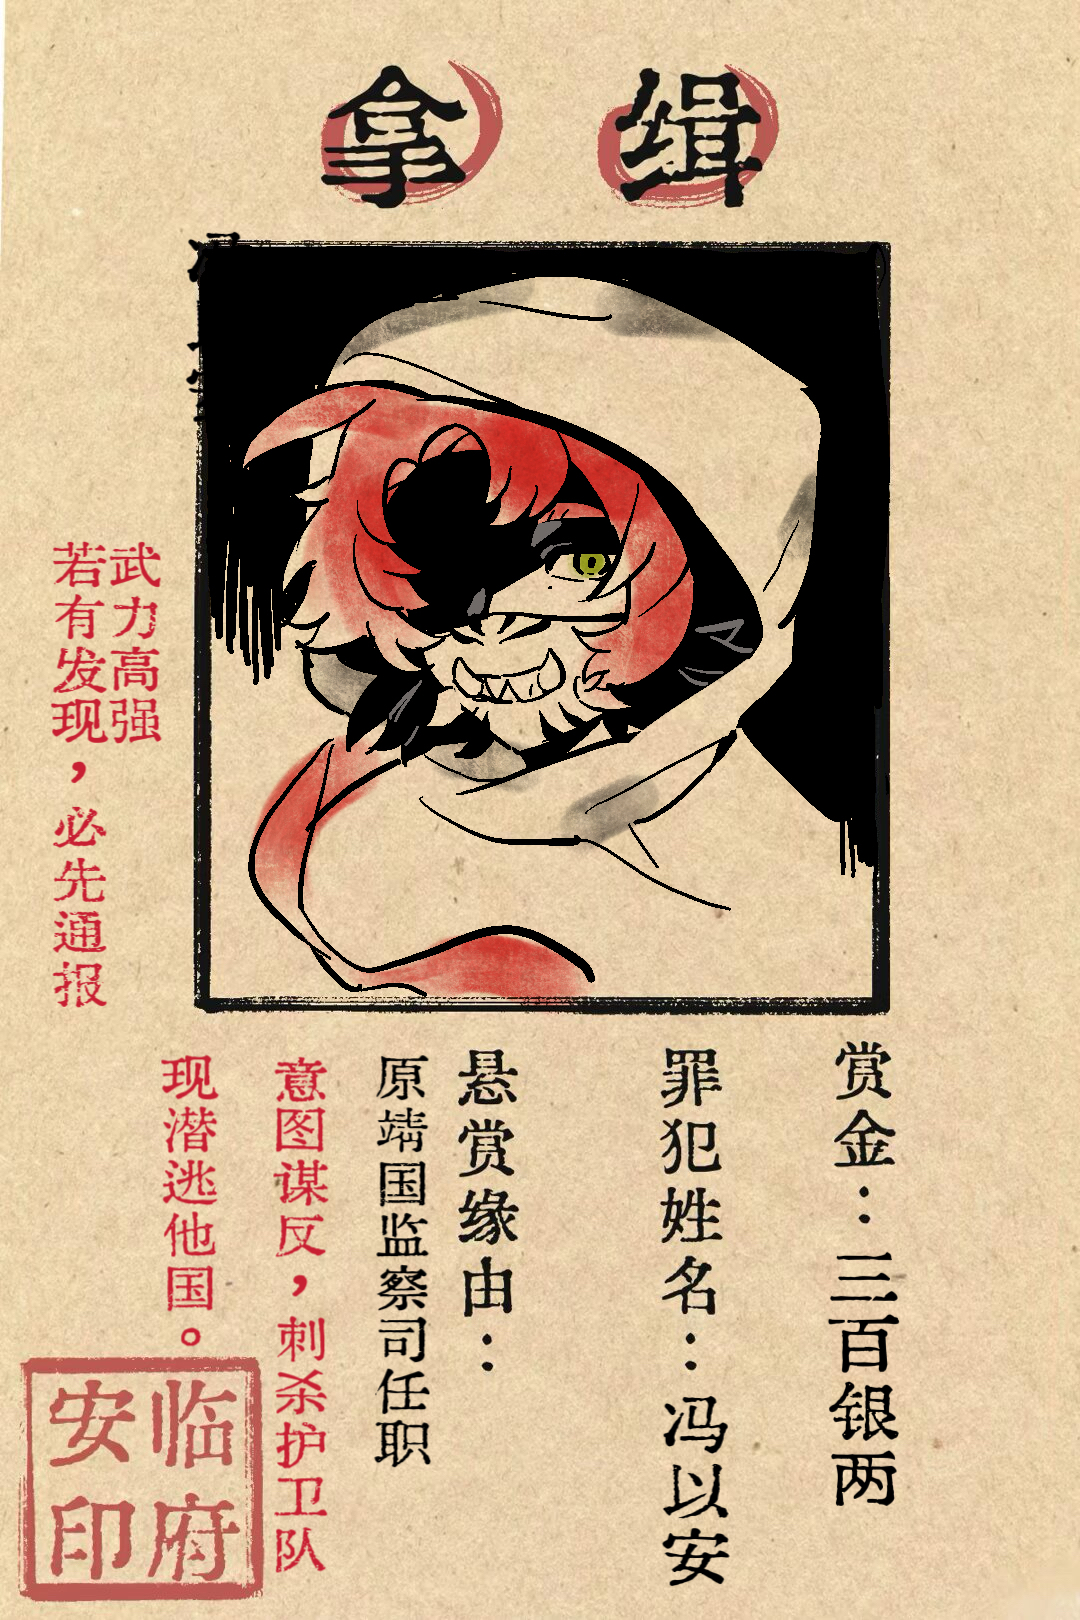 缉拿
赏金：三百银两
罪犯姓名：冯以安
悬赏缘由：
原靖国监察司任职
意图谋反，刺杀护卫队
现潜逃他国。
武力高强
若有发现，必先通报
临安
府印